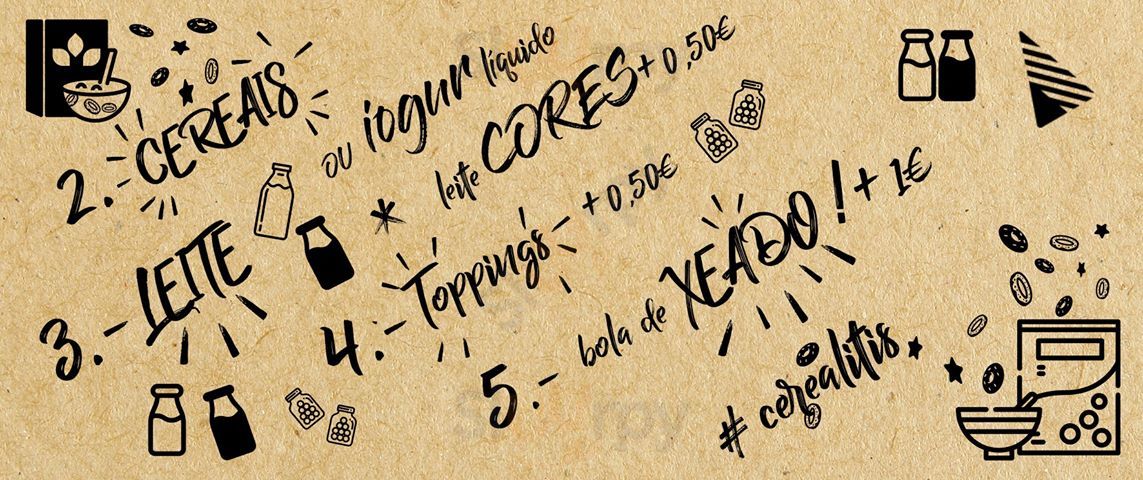 2. CEREAIS
ou iogur líquido
* leite CORES + 0,50€
3.- LEITE
4.- Toppings + 0,50€
5.- bola de XEADO! + 1€
# cerealitis